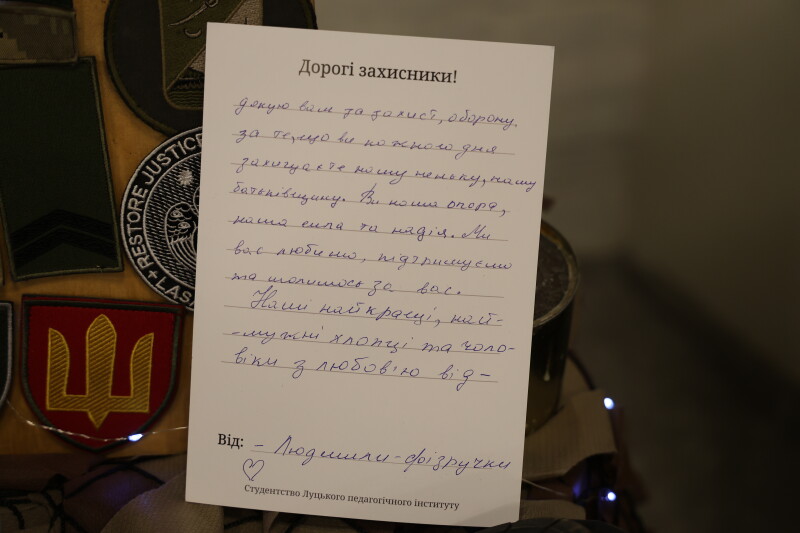 Дорогі захисники!
дякую вам за захист, оборону.
за те, що ви кожного дня
захищаєте нашу неньку, нашу
батьківщину. Ви наша опора,
наша сила та надія. Ми
вас любимо, підтримуємо
та молимось за вас.
Наші найкращі, най-
-мужні хлопці та чоло-
віки з любов'ю від -
Від: - Людмили-фізручки
Студентство Луцького педагогічного інституту
RESTORE JUSTICE
LASA